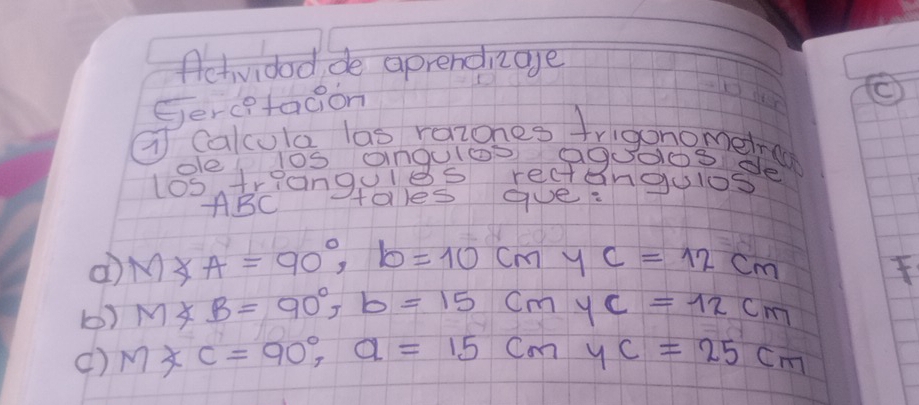 Actividad de aprendizaje
Ejercitación
① Calcula las razones trigonometricas
de los angulos agudos de
los triangulos rectangulos
ABC tales que:
a) M∡A = 90°, b = 10 cm y c = 12 cm
b) M∡B = 90°, b = 15 cm y c = 12 cm
c) M∡C = 90°, a = 15 cm y c = 25 cm
C